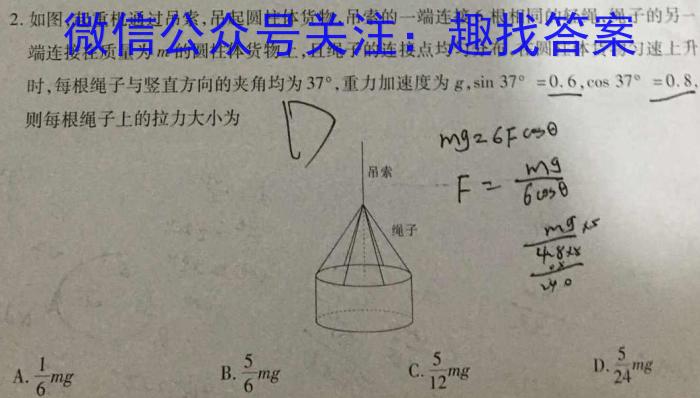 2. 如图,起重机通过吊索,吊起圆柱体货物,吊索的一端连接6根相同的轻绳,绳子的另一
微信公众号关注：趣找答案
端连接在质量为m的圆柱体货物上,且绳子的连接点均匀分布,在圆柱体匀速上升
时,每根绳子与竖直方向的夹角均为37°,重力加速度为g,sin 37° =0.6,cos 37° =0.8,
则每根绳子上的拉力大小为
D
mg=6Fcosθ
吊索
F = mg/6cosθ
绳子
mg×5
4.8×5
240
A. 1/6 mg
B. 5/6 mg
C. 5/12 mg
D. 5/24 mg